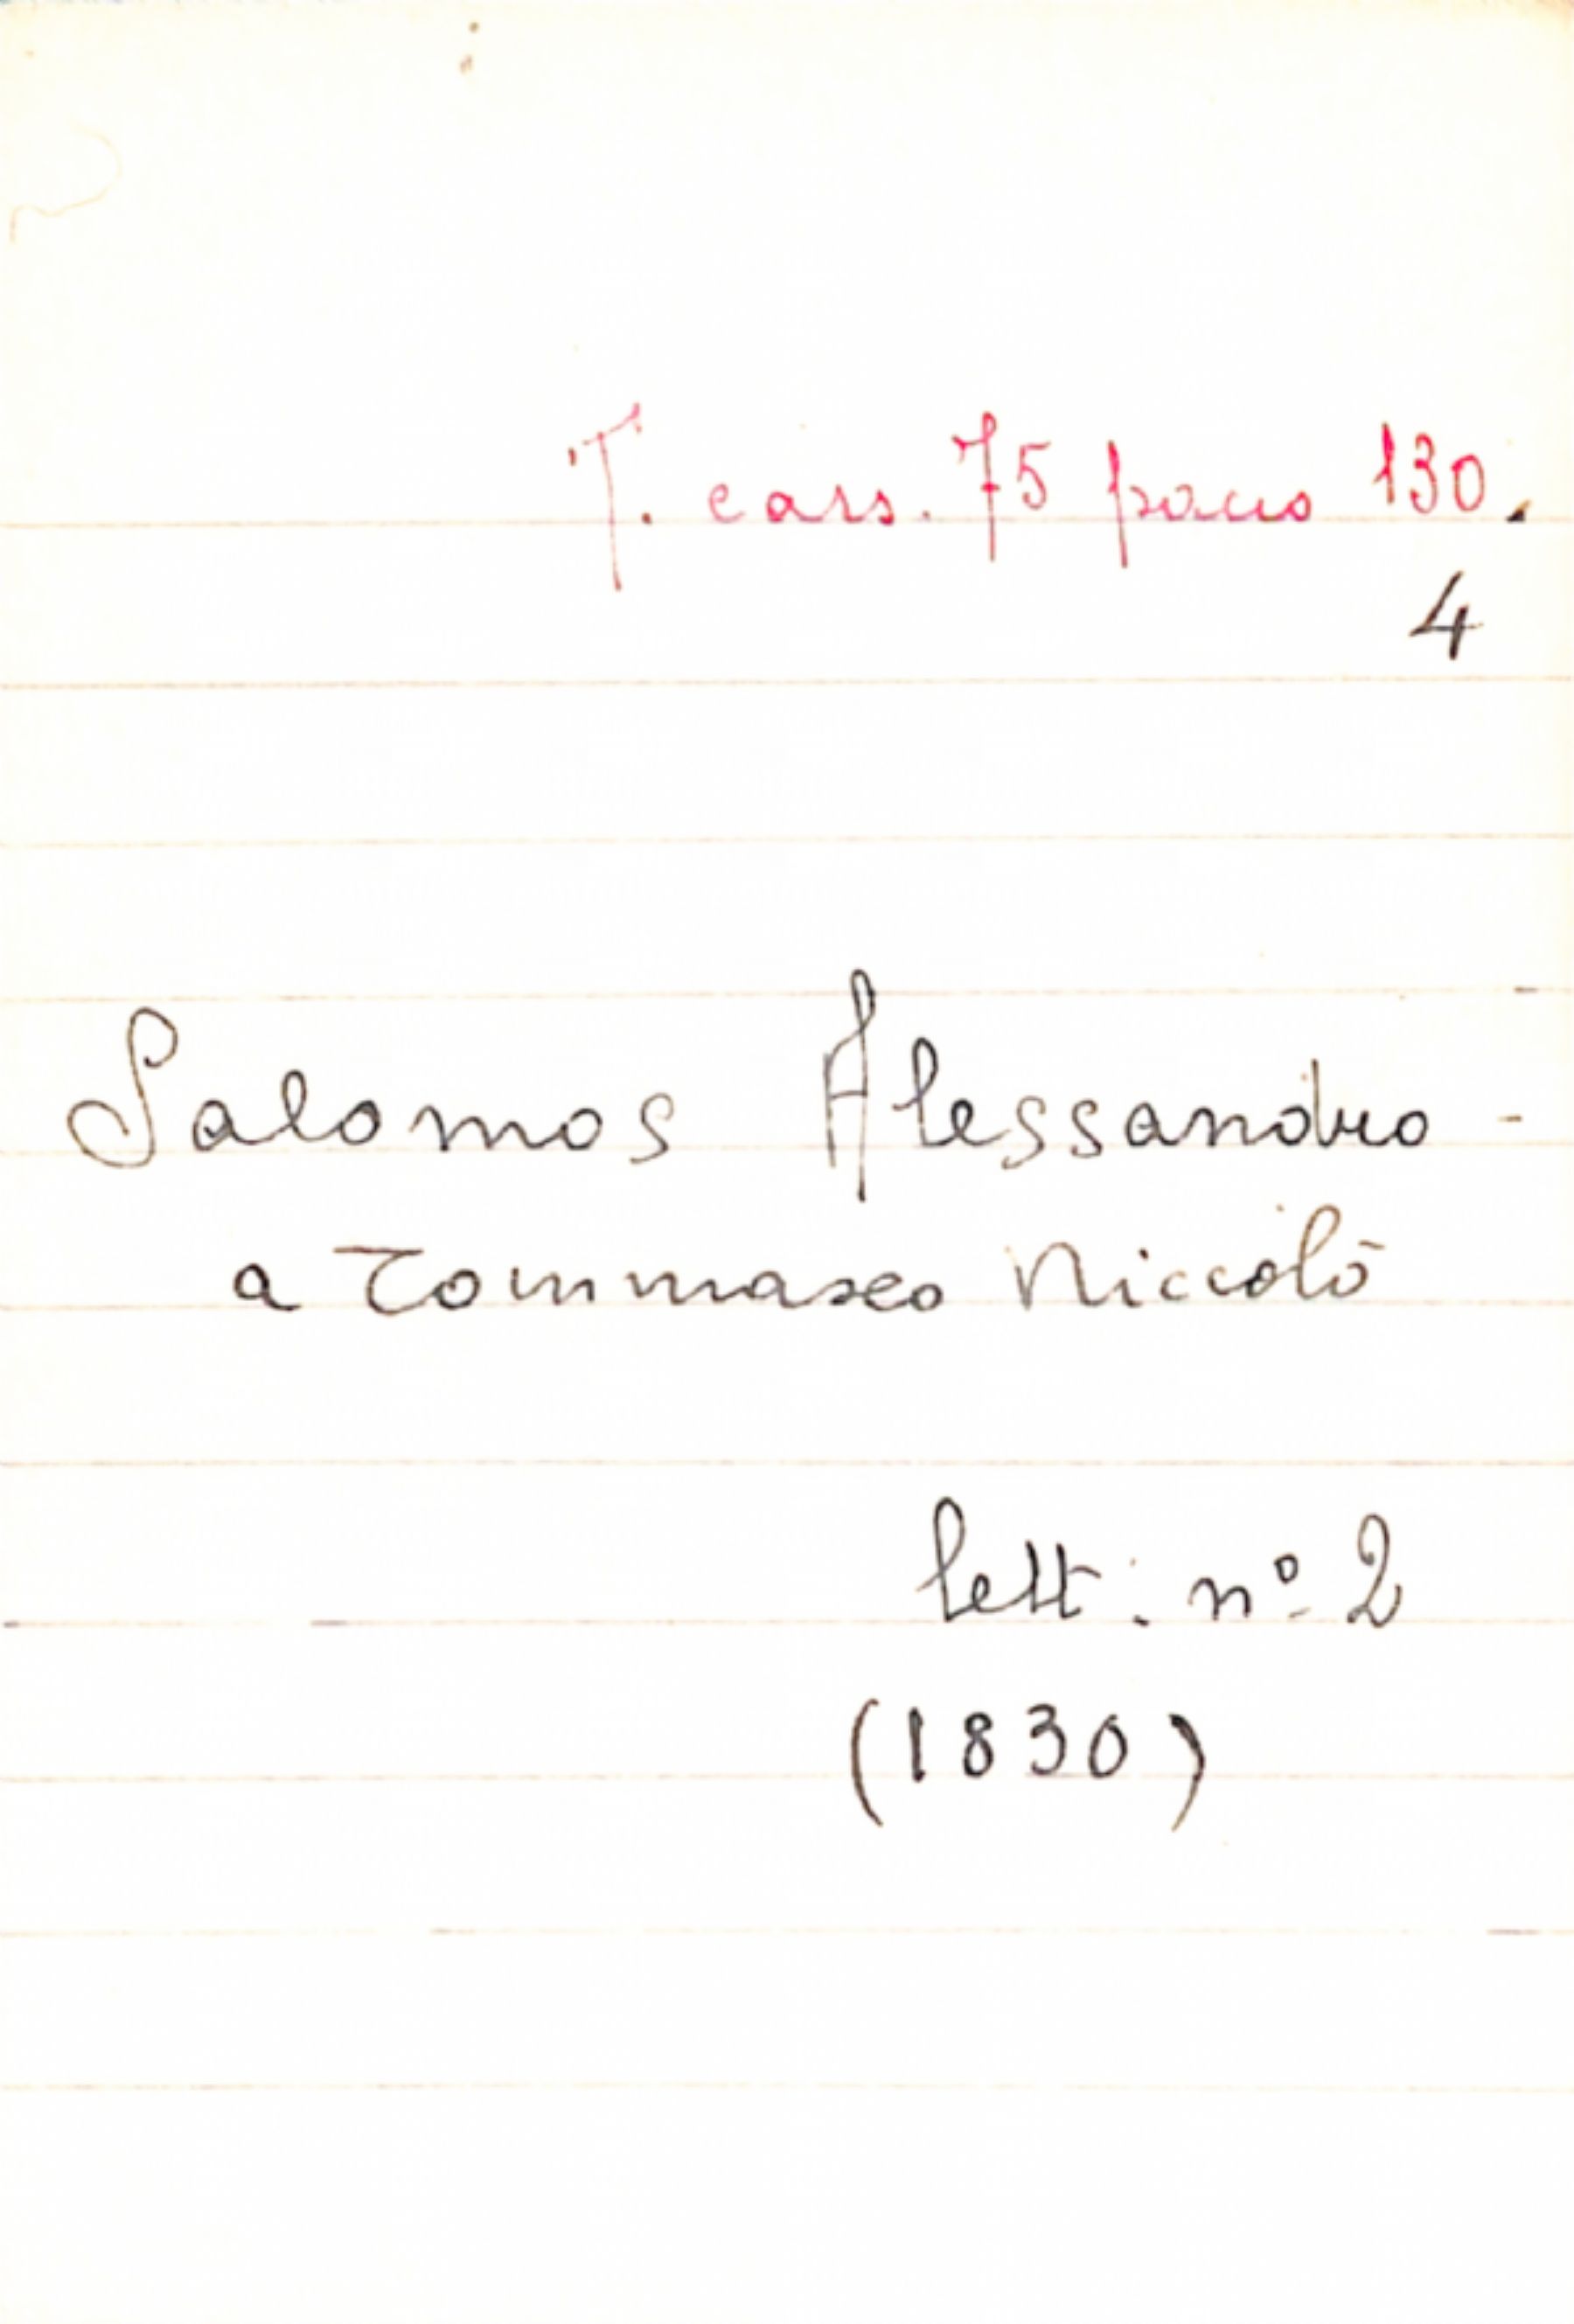 T. cass. 75 pacco 130.
4
Salomos Alessandro -
a Tommaseo Niccolò
lett: nº 2
(1830)